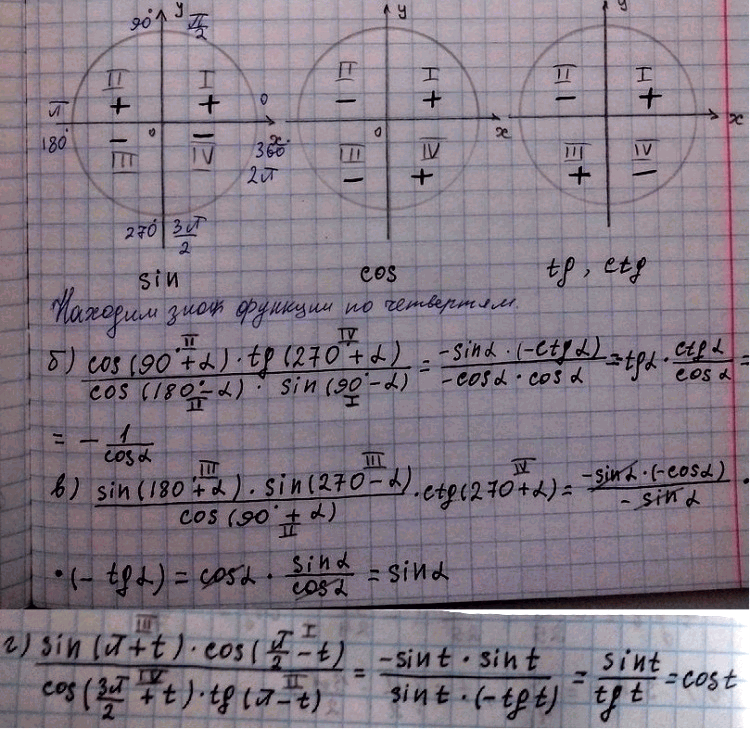 90° y π/2
II I
+ + 0
π 0 x
180° − − 360°
III IV 2π
270° 3π/2
sin
y
II I
− +
0 x
III IV
− +
cos
y
II I
− +
x
III IV
+ −
tg, ctg
Находим знак функции по четвертям.
б) (cos(90°+α) [II] · tg(270°+α) [IV]) / (cos(180°−α) [II] · sin(90°−α) [I]) = (−sinα · (−ctgα)) / (−cosα · cosα) = tgα · ctgα/cosα =
= − 1/cosα
в) (sin(180°+α) [III] · sin(270−α) [III]) / (cos(90°+α) [II]) · ctg(270+α) [IV] = (−sinα · (−cosα)) / (−sinα) ·
· (−tgα) = cosα · sinα/cosα = sinα
г) (sin(π+t) [III] · cos(π/2−t) [I]) / (cos(3π/2+t) [IV] · tg(π−t) [II]) = (−sint · sint) / (sint · (−tgt)) = sint/tgt = cost